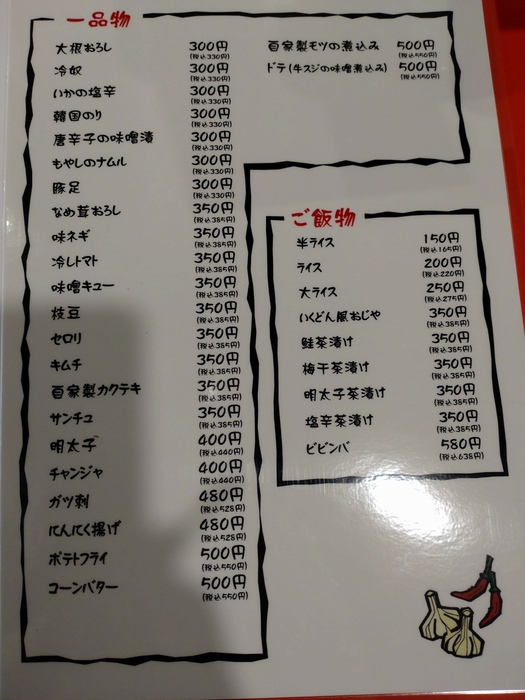 一品物
大根おろし 300円
(税込330円)
冷奴 300円
(税込330円)
いかの塩辛 300円
(税込330円)
韓国のり 300円
(税込330円)
唐辛子の味噌漬 300円
(税込330円)
もやしのナムル 300円
(税込330円)
豚足 300円
(税込330円)
なめ茸おろし 350円
(税込385円)
味ネギ 350円
(税込385円)
冷しトマト 350円
(税込385円)
味噌キュー 350円
(税込385円)
枝豆 350円
(税込385円)
セロリ 350円
(税込385円)
キムチ 350円
(税込385円)
自家製カクテキ 350円
(税込385円)
サンチュ 350円
(税込385円)
明太子 400円
(税込440円)
チャンジャ 400円
(税込440円)
ガツ刺 480円
(税込528円)
にんにく揚げ 480円
(税込528円)
ポテトフライ 500円
(税込550円)
コーンバター 500円
(税込550円)
自家製モツの煮込み 500円
(税込550円)
ドテ(牛スジの味噌煮込み) 500円
(税込550円)
ご飯物
半ライス 150円
(税込165円)
ライス 200円
(税込220円)
大ライス 250円
(税込275円)
いくどん風おじや 350円
(税込385円)
鮭茶漬け 350円
(税込385円)
梅干茶漬け 350円
(税込385円)
明太子茶漬け 350円
(税込385円)
塩辛茶漬け 350円
(税込385円)
ビビンバ 580円
(税込638円)